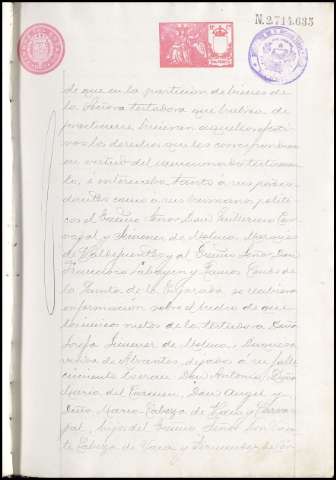 N.2,714,635
de que en la partición de bienes de
la Señora testadora que hubiera de
practicarse hicieran aquellos efecti-
vos los derechos que les correspondían
en virtud del mencionado testamen-
to, é interesaba tanto á sus poder-
dantes como á su hermano políti-
co el Excmo Señor Don Guillermo Car-
vajal y Jimenez de Molina, Marqués
de Valdefuentes y al Excmo Señor Don
y Ramos Conde de
la de la Algarada, se recibiera
información sobre el hecho de que
los únicos nietos de la testadora Doña
Josefa Jimenez de Molina, Duquesa
viuda de Abrantes, dejado á su falle-
cimiento eran Don Antonio, Doña
María del Carmen, Don Angel y
Doña María Cabeza de Vaca y Carva-
jal, hijos del Excmo Señor Don
Cabeza de Vaca y Fernandez de Cor-